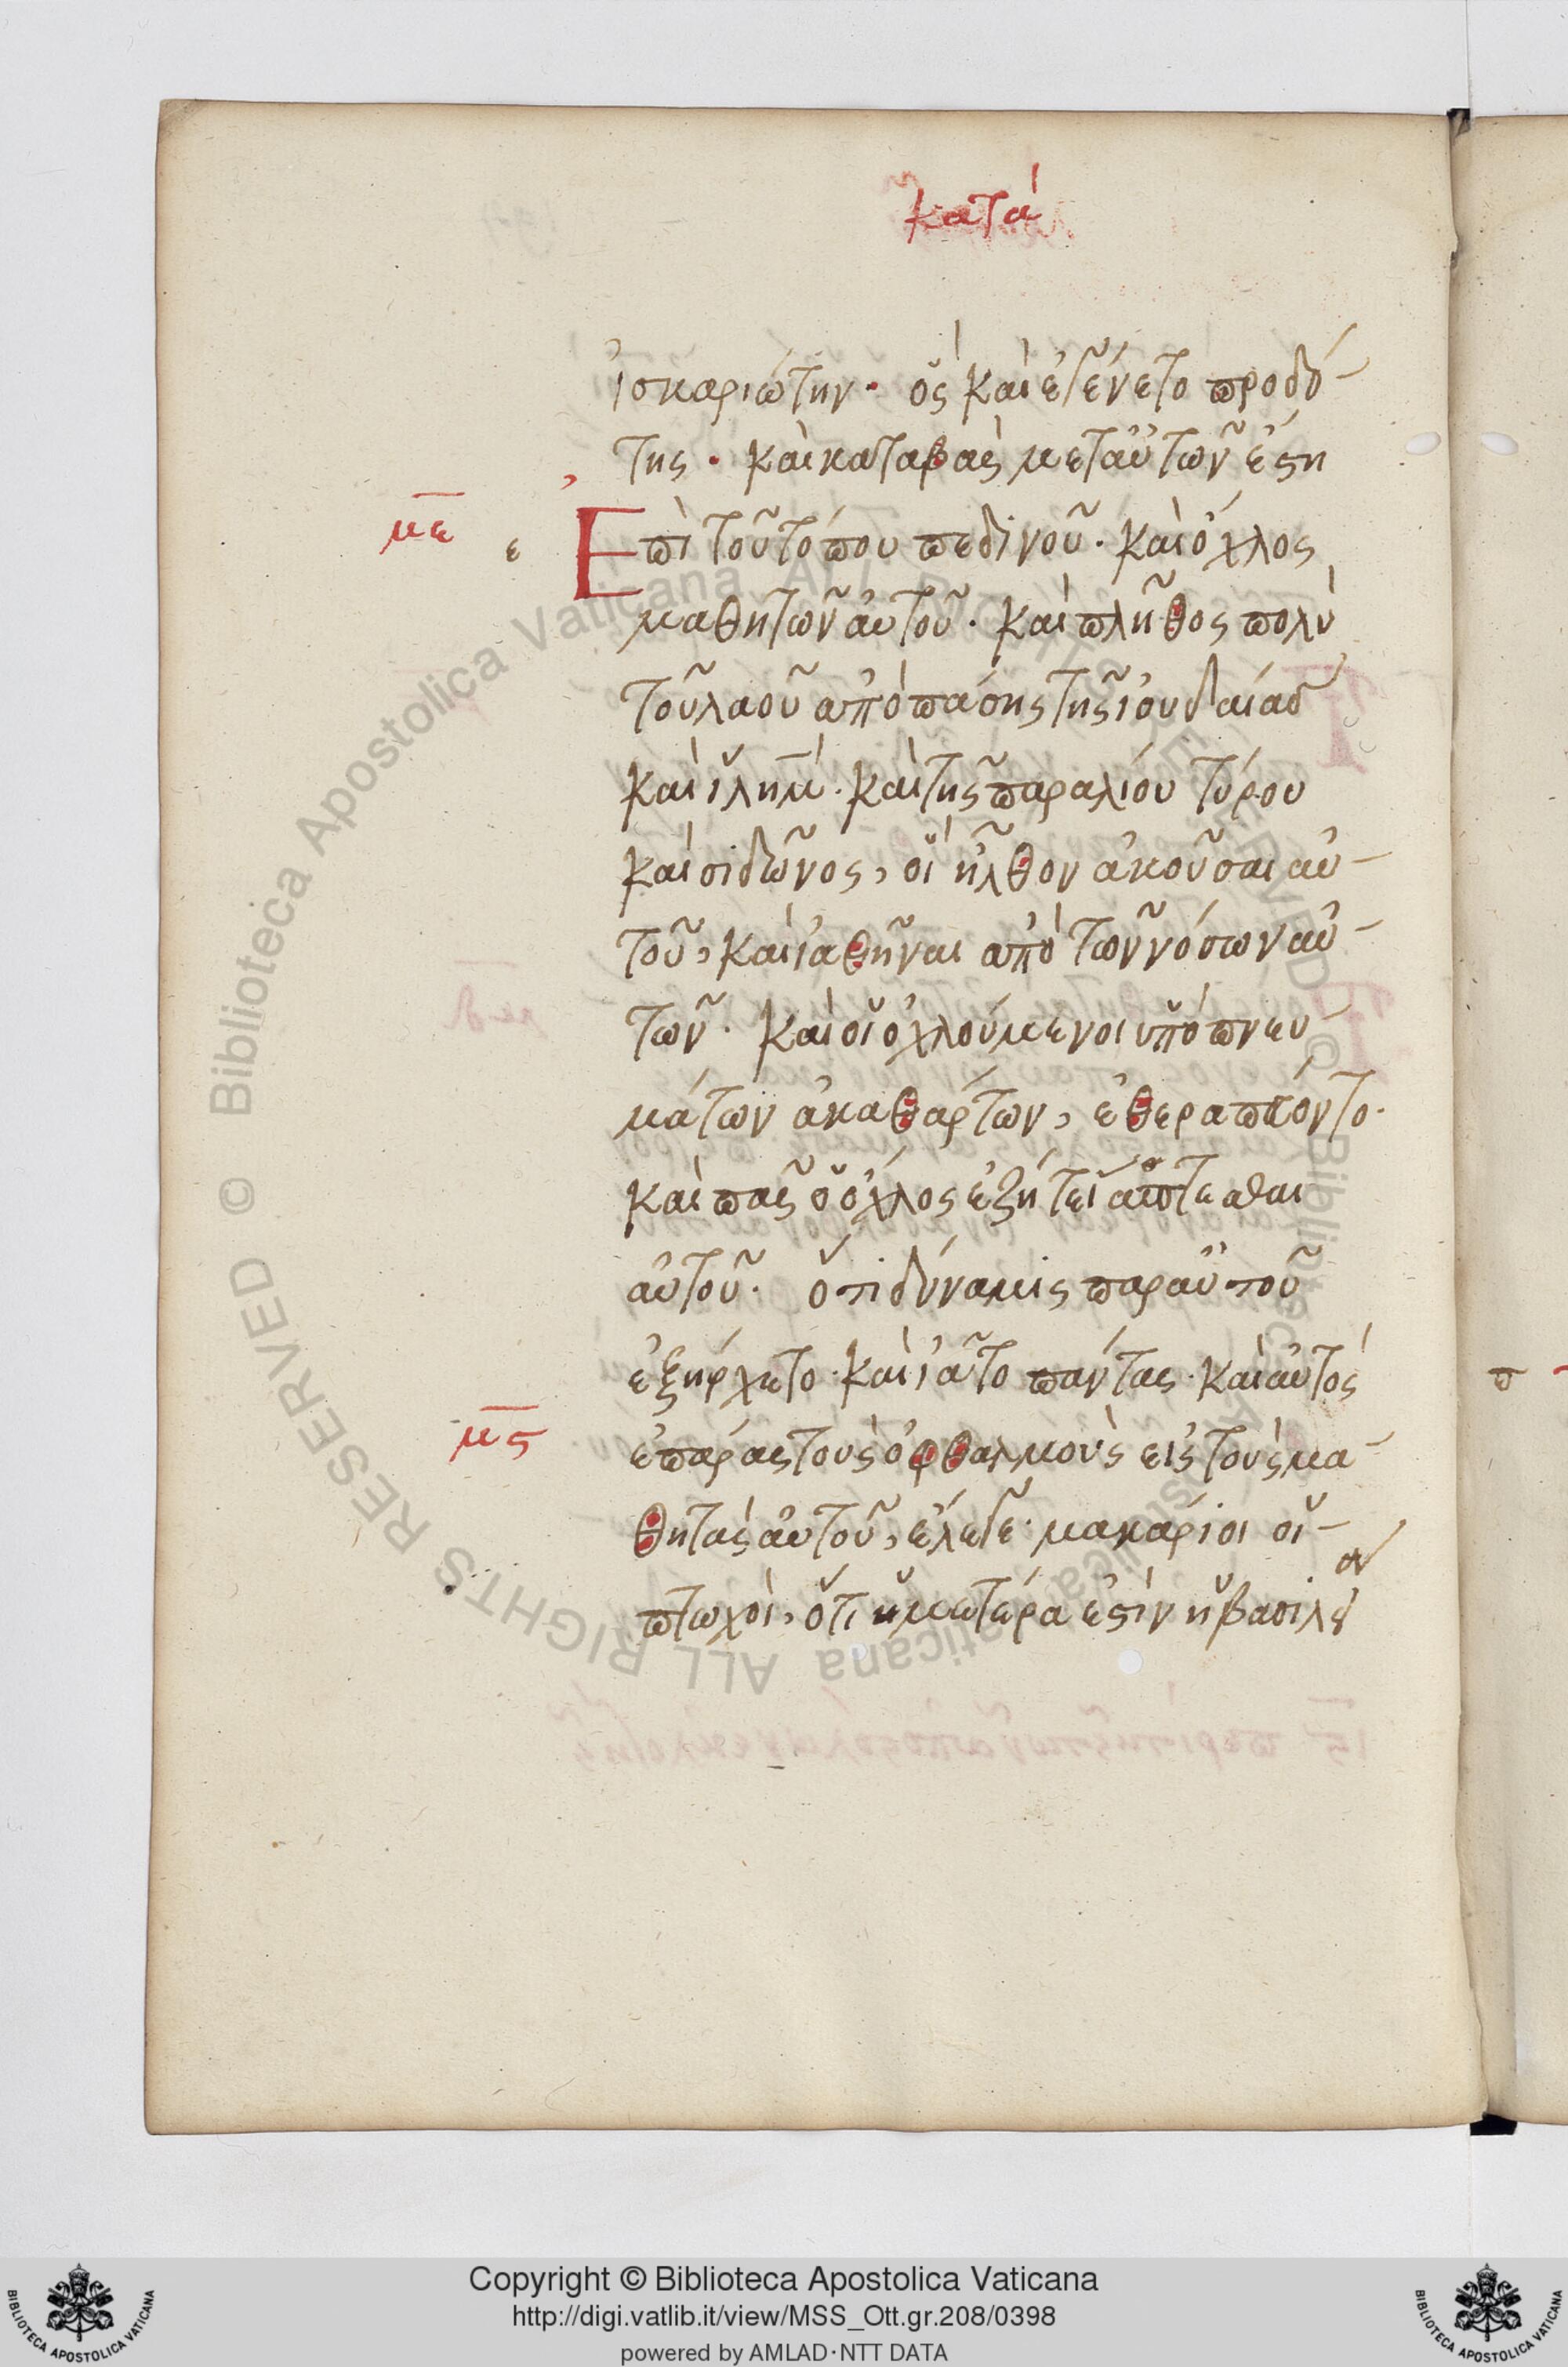 κατὰ
ἰσκαριώτην· ὃς καὶ ἐγένετο προδό-
της· καὶ καταβὰς μετ' αὐτῶν ἔστη
με ε Ἐπὶ τοῦ τόπου πεδινοῦ· καὶ ὄχλος
μαθητῶν αὐτοῦ· καὶ πλῆθος πολὺ
τοῦ λαοῦ ἀπὸ πάσης τῆς ἰουδαίας
καὶ ἰλημ· καὶ τῆς παραλίου τύρου
καὶ σιδῶνος, οἳ ἦλθον ἀκοῦσαι αὐ-
τοῦ, καὶ ἰαθῆναι ἀπὸ τῶν νόσων αὐ-
τῶν· καὶ οἱ ὀχλούμενοι ὑπὸ πνευ-
μάτων ἀκαθάρτων, ἐθεραπεύοντο·
καὶ πᾶς ὁ ὄχλος ἐζήτει ἅπτεσθαι
αὐτοῦ· ὅτι δύναμις παρ' αὐτοῦ
ἐξήρχετο· καὶ ἰᾶτο πάντας· καὶ αὐτὸς
μς ἐπάρας τοὺς ὀφθαλμοὺς εἰς τοὺς μα-
θητὰς αὐτοῦ, ἔλεγε· μακάριοι οἱ-
πτωχοὶ, ὅτι ἡμετέρα ἐστὶν ἡ βασιλεία
Copyright © Biblioteca Apostolica Vaticana
http://digi.vatlib.it/view/MSS_Ott.gr.208/0398
powered by AMLAD·NTT DATA
BIBLIOTECA APOSTOLICA VATICANA
BIBLIOTECA APOSTOLICA VATICANA
© Biblioteca Apostolica Vaticana ALL RIGHTS RESERVED
© Biblioteca Apostolica Vaticana ALL RIGHTS RESERVED